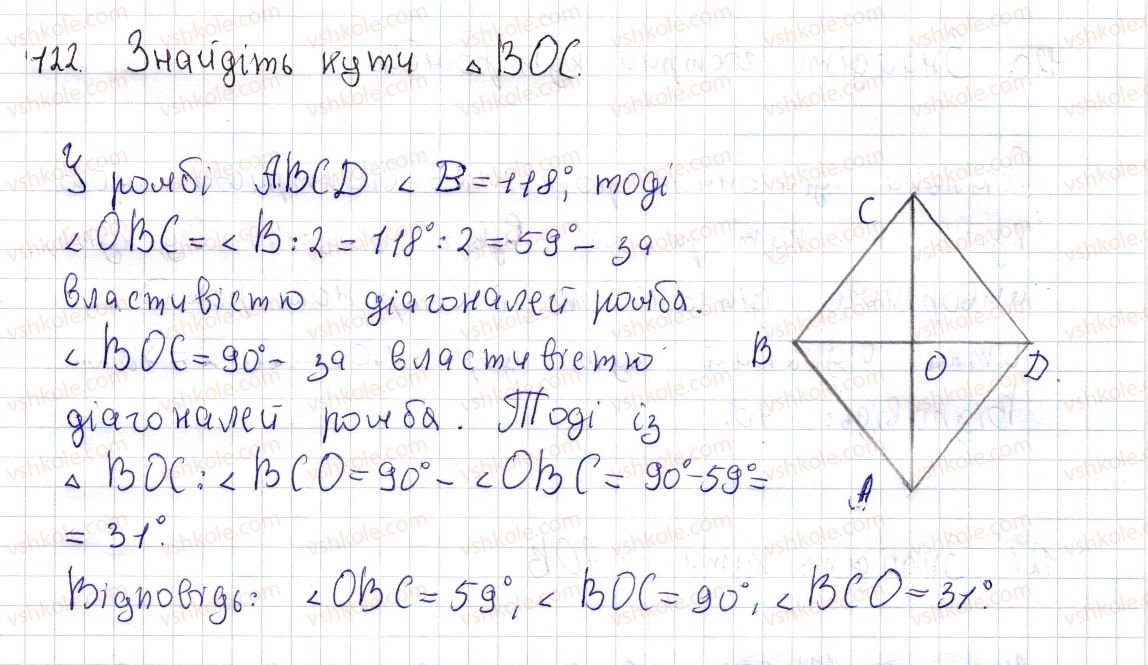 122. Знайдіть кути △BOC.
У ромбі ABCD ∠B = 118°, тоді
∠OBC = ∠B : 2 = 118° : 2 = 59° – за
властивістю діагоналей ромба.
∠BOC = 90° – за властивістю
діагоналей ромба. Тоді із
△BOC: ∠BCO = 90° – ∠OBC = 90° – 59° =
= 31°.
Відповідь: ∠OBC = 59°, ∠BOC = 90°, ∠BCO = 31°.
C
B
O
D
A
vshkole.com